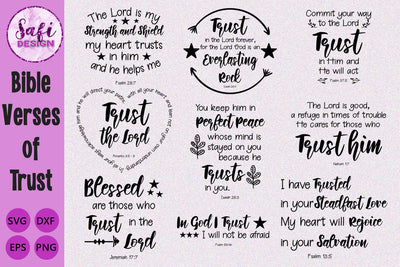 Safi
DESIGN
Bible
Verses
of
Trust
SVG
DXF
EPS
PNG
The Lord is my
Strength and Shield
my heart trusts
in him
and he helps me
Psalm 28:7
Trust
in the Lord forever,
for the Lord God is an
Everlasting
Rock
Isaiah 26:4
Commit your way
to the Lord
Trust
in Him and
He will act
Psalm 37:5
Trust
the Lord
with all your heart and lean not on your own understanding
and he will direct your path
Proverbs 3:5
You keep him in
perfect peace
whose mind is
stayed on you
because he
Trusts
in you.
Isaiah 26:3
The Lord is good,
a refuge in times of trouble
He cares for those who
Trust him
Nahum 1:7
Blessed
are those who
Trust in the
Lord
Jeremiah 17:7
In God I Trust
I will not be afraid
Psalm 56:4
I have Trusted
in your Steadfast Love
My heart will Rejoice
in your Salvation
Psalm 13:5